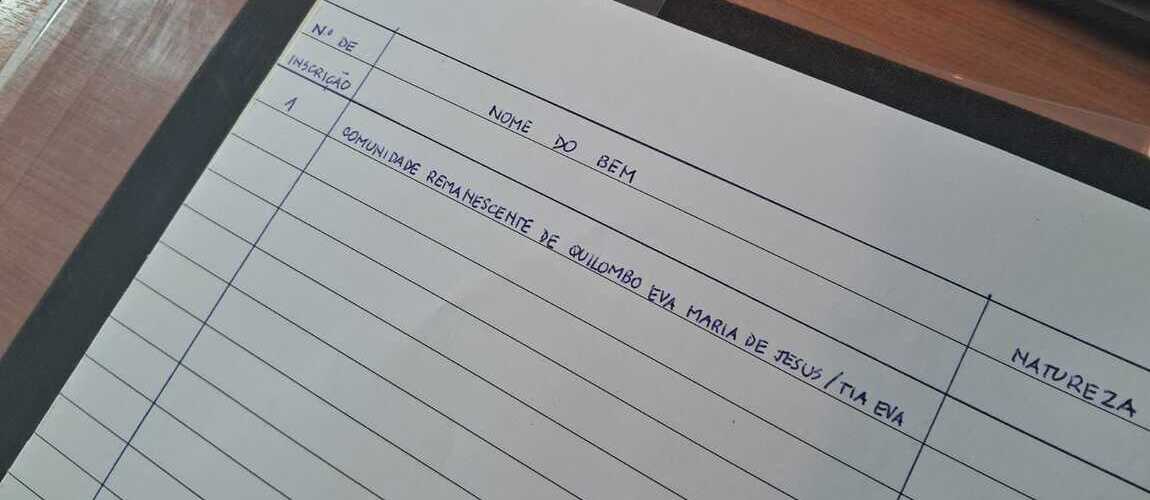 Nº DE
INSCRIÇÃO
NOME DO BEM
NATUREZA
1
COMUNIDADE REMANESCENTE DE QUILOMBO EVA MARIA DE JESUS / TIA EVA